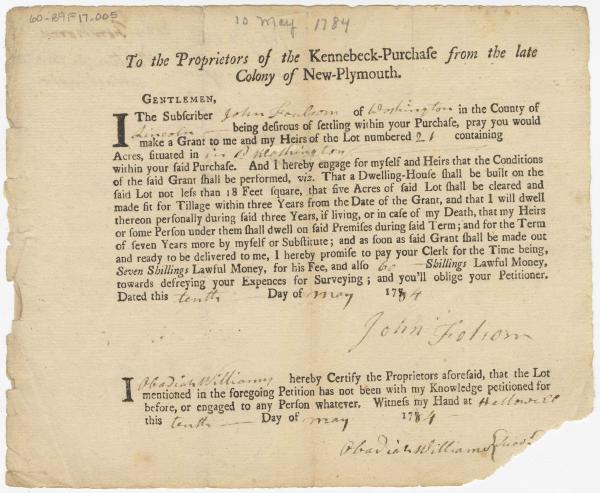 60-RG F17.005
10 May. 1784
To the Proprietors of the Kennebeck-Purchaſe from the late
Colony of New-Plymouth.
GENTLEMEN,
I The Subſcriber John Foulsom of Washington in the County of
Lincoln being deſirous of ſettling within your Purchaſe, pray you would
make a Grant to me and my Heirs of the Lot numbered 21 containing
Acres, ſituated in Washington
within your ſaid Purchaſe. And I hereby engage for myſelf and Heirs that the Conditions
of the ſaid Grant ſhall be performed, viz. That a Dwelling-Houſe ſhall be built on the
ſaid Lot not leſs than 18 Feet ſquare, that five Acres of ſaid Lot ſhall be cleared and
made fit for Tillage within three Years from the Date of the Grant, and that I will dwell
thereon perſonally during ſaid three Years, if living, or in caſe of my Death, that my Heirs
or ſome Perſon under them ſhall dwell on ſaid Premiſes during ſaid Term; and for the Term
of ſeven Years more by myſelf or Subſtitute; and as ſoon as ſaid Grant ſhall be made out
and ready to be delivered to me, I hereby promiſe to pay your Clerk for the Time being,
Seven Shillings Lawful Money, for his Fee, and alſo Shillings Lawful Money,
towards defreying your Expences for Surveying; and you'll oblige your Petitioner.
Dated this tenth Day of may 1784
John Folsom
I Obadiah Williams hereby Certify the Proprietors aforeſaid, that the Lot
mentioned in the foregoing Petition has not been with my Knowledge petitioned for
before, or engaged to any Perſon whatever. Witneſs my Hand at Hallowell
this tenth Day of may 1784
Obadiah Williams